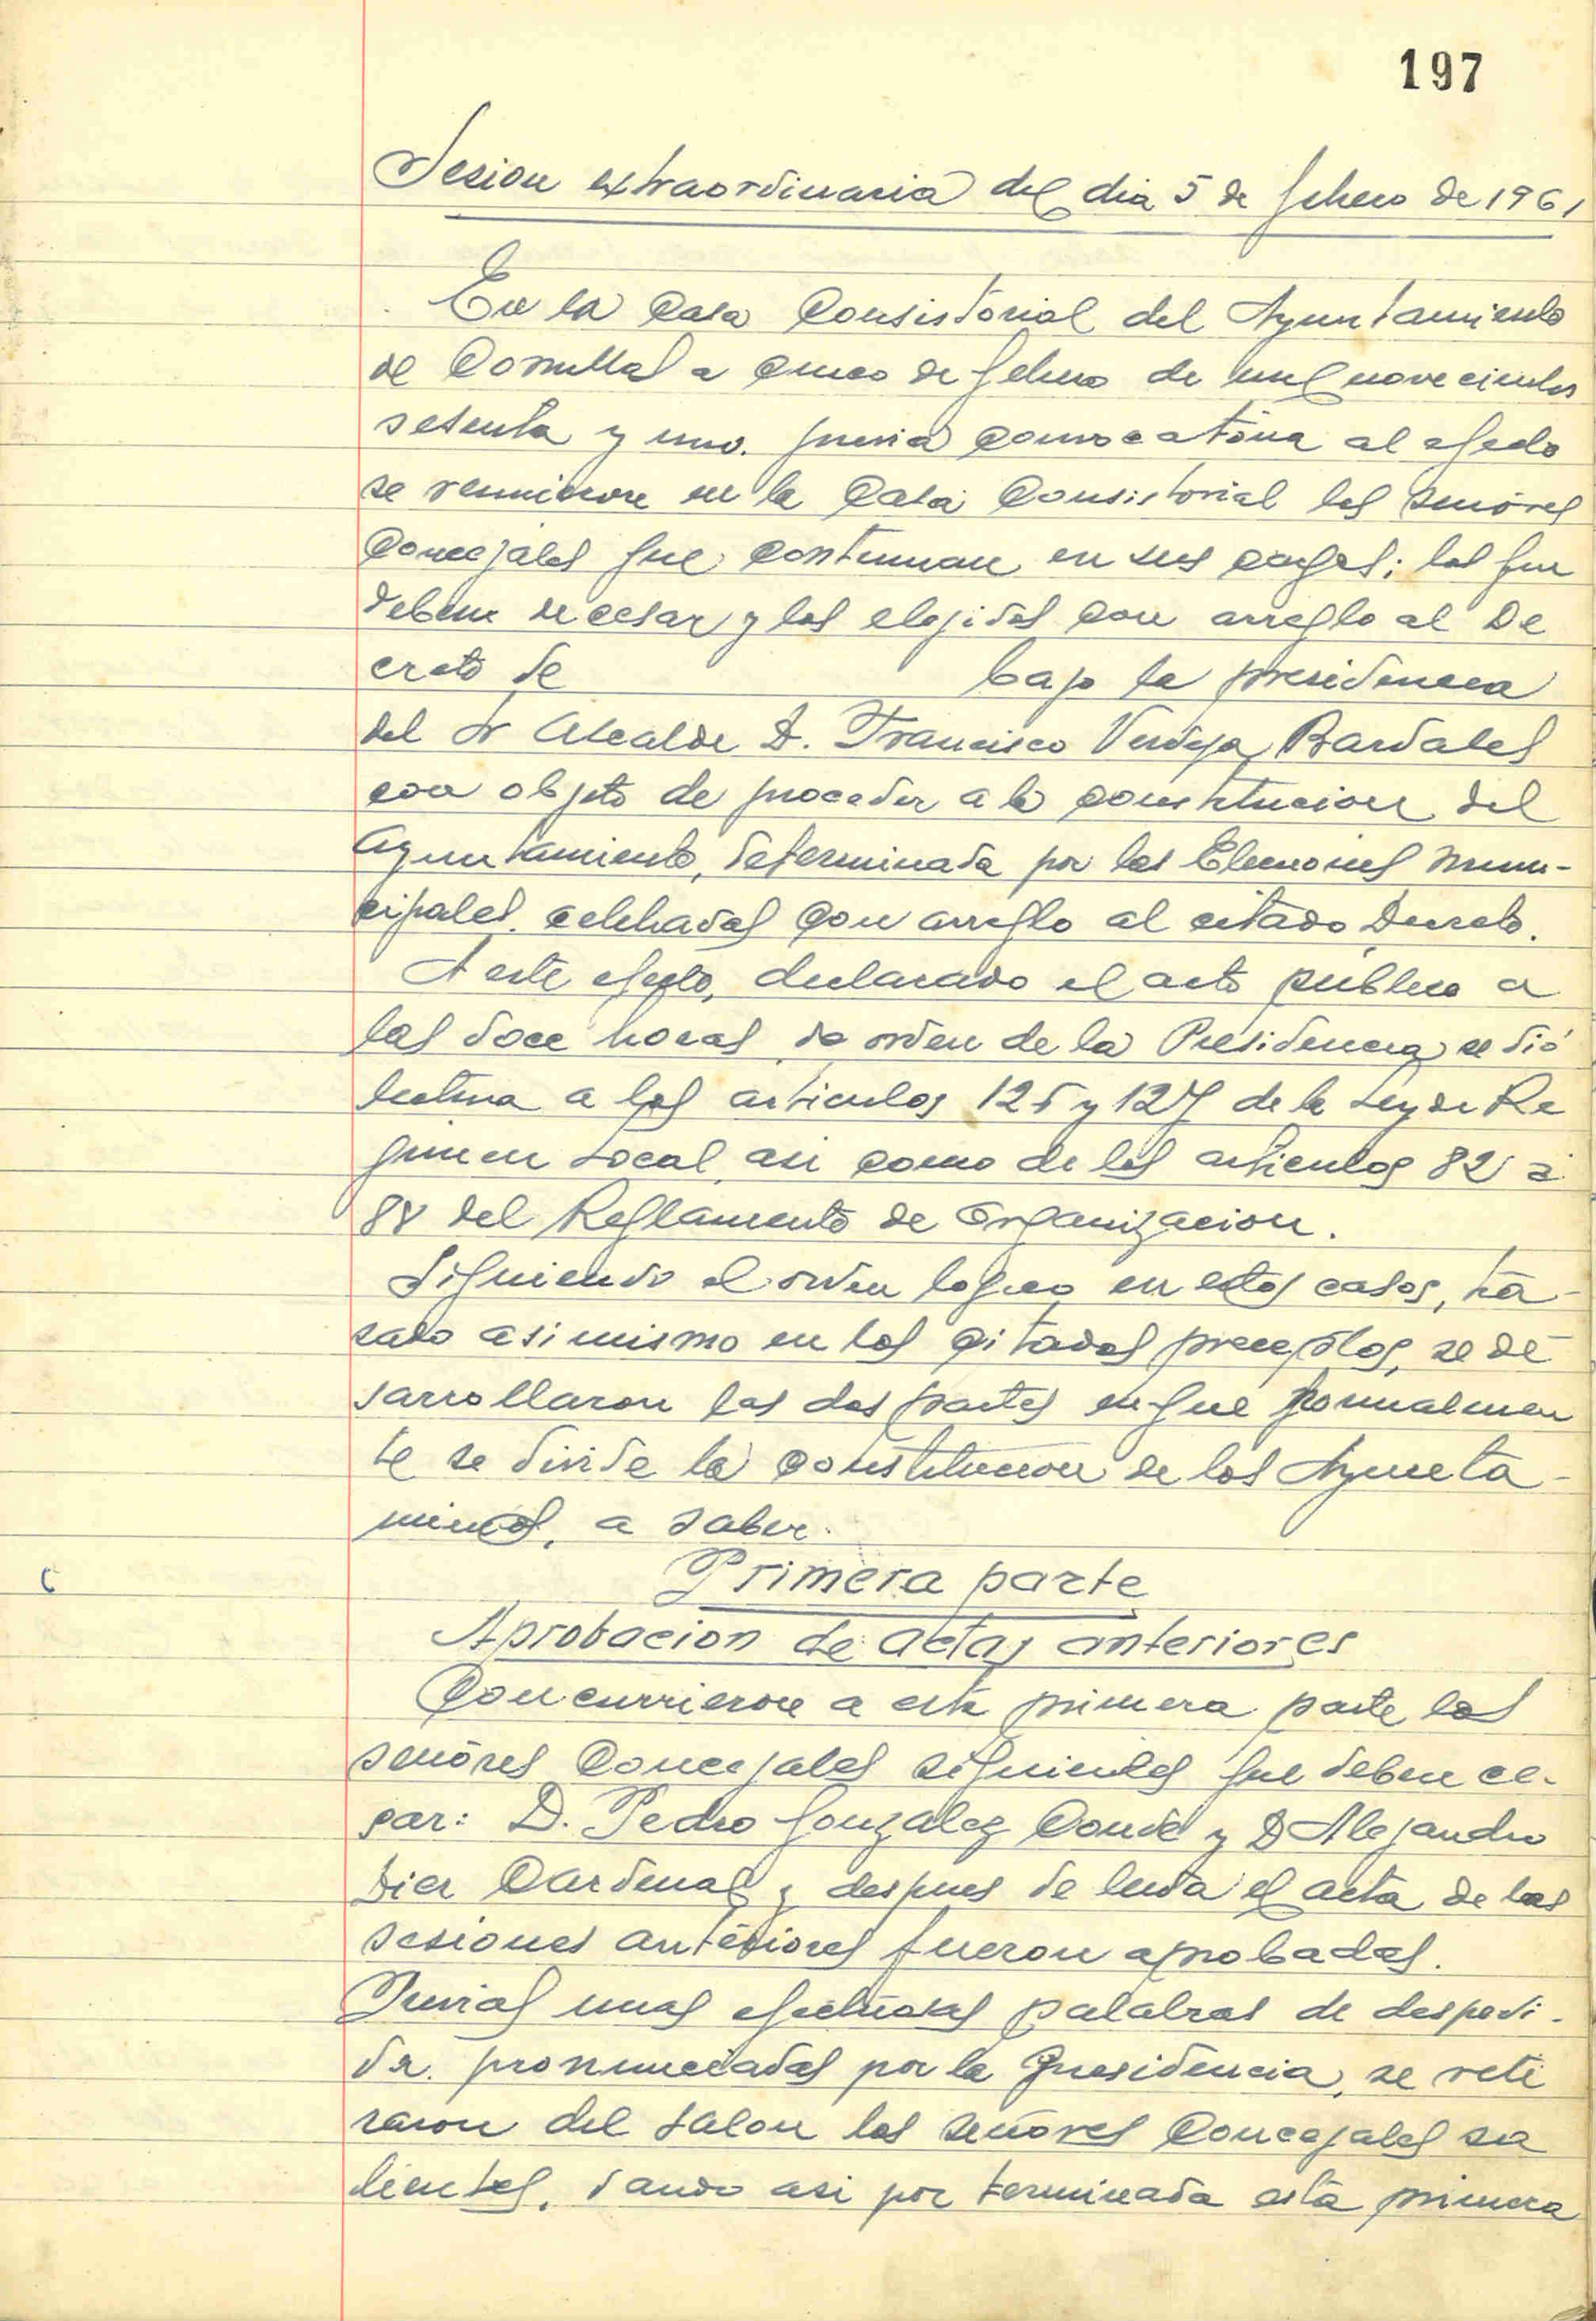 197
Sesion extraordinaria del dia 5 de febrero de 1961
En la Casa Consistorial del Ayuntamiento
de Comillas a cinco de febrero de mil novecientos
sesenta y uno. previa convocatoria al efecto
se reunieron en la Casa Consistorial los señores
Concejales que continuan en sus cargos; los que
deben de cesar y los elejidos con arreglo al De
creto de bajo la presidencia
del Sr Alcalde D. Francisco Verdeja Bardales
con objeto de proceder a la constitucion del
Ayuntamiento, determinada por las Elecciones Muni-
cipales. celebradas con arreglo al citado Decreto.
A este efecto, declarado el acto público a
las doce horas de orden de la Presidencia se dió
lectura a los articulos 125 y 127 de la Ley de Re
gimen Local, asi como de los articulos 82 a
88 del Reglamento de Organizacion.
Siguiendo el orden logico en estos casos, ba-
sado asimismo en los citados preceptos, se de
sarrollaron las dos partes en que formalmen
te se divide la constitucion de los Ayunta-
mientos, a saber.
Primera parte
Aprobacion de actas anteriores
Concurrieron a esta primera parte los
señores Concejales siguientes que deben ce-
sar: D. Pedro Gonzalez Conde y D Alejandro
Dier Cardenal y despues de leida el acta de las
sesiones anteriores fueron aprobadas.
Previas unas afectuosas palabras de despedi-
da. pronunciadas por la Presidencia, se reti
raron del salon los señores Concejales sa
lientes, dando asi por terminada esta primera